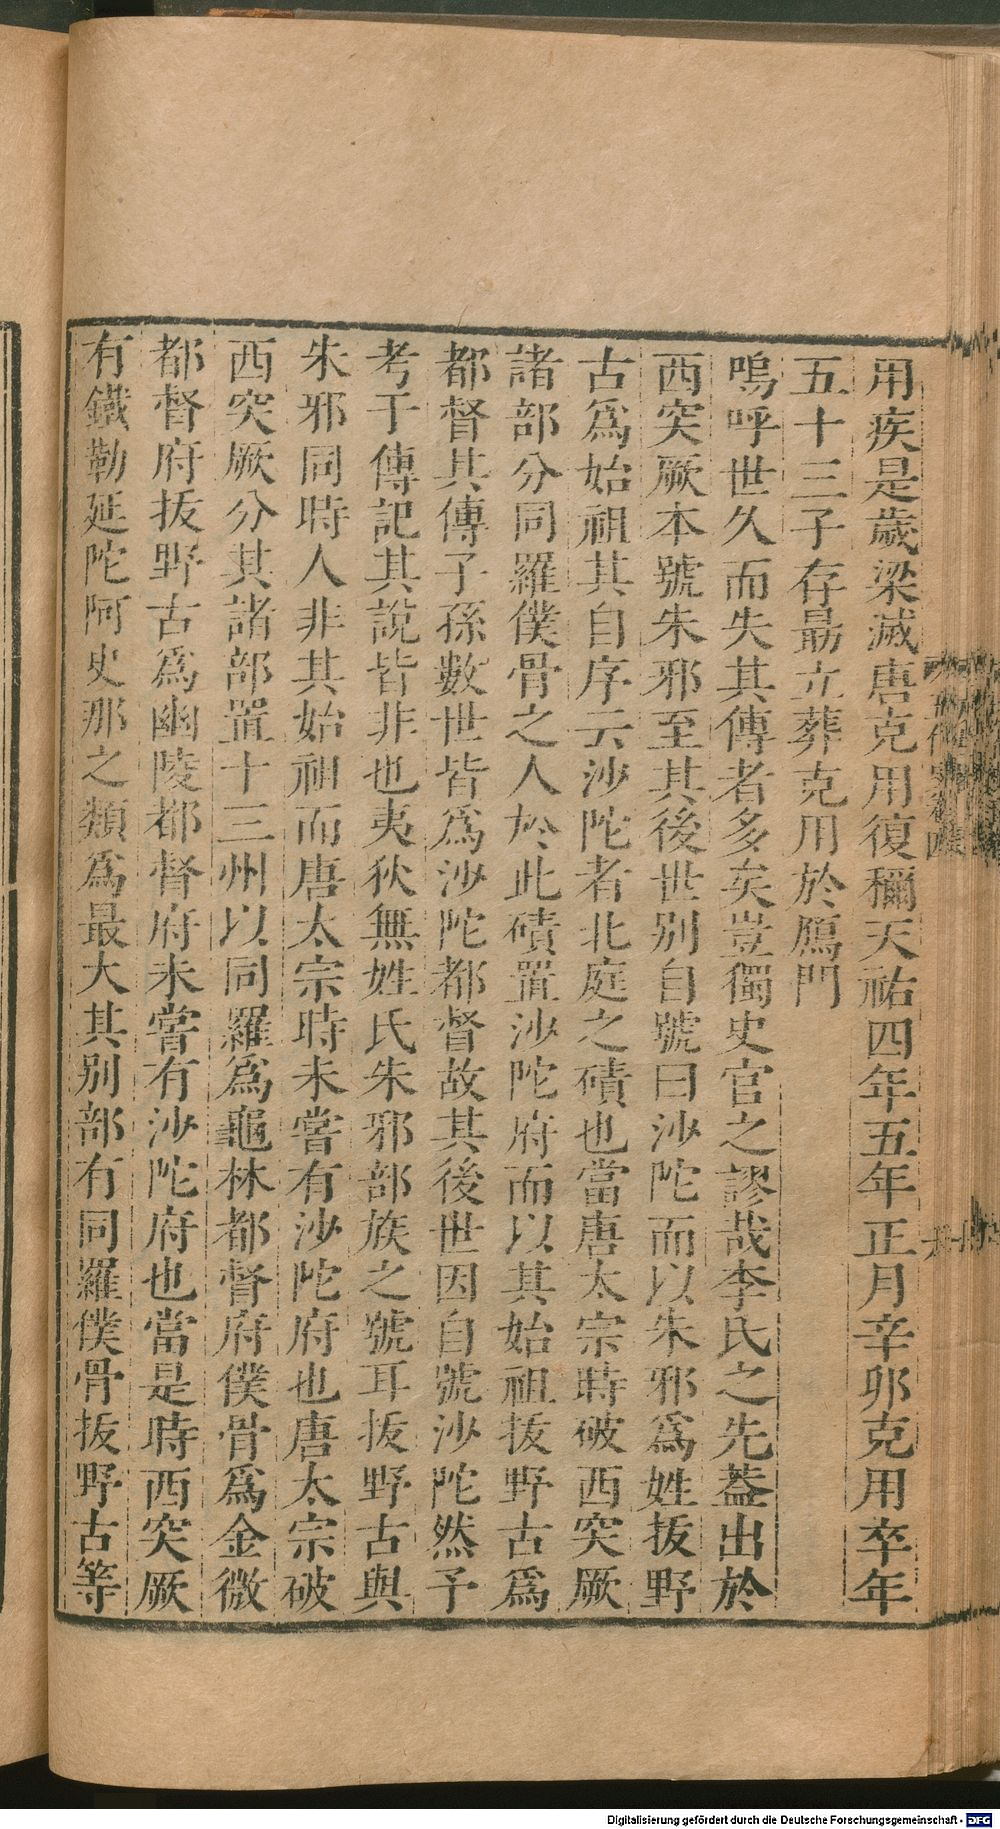 用疾是歲梁滅唐克用復稱天祐四年五年正月辛卯克用卒年
五十三子存勗立葬克用於鴈門
嗚呼世久而失其傳者多矣豈獨史官之謬哉李氏之先蓋出於
西突厥本號朱邪至其後世別自號曰沙陀而以朱邪爲姓拔野
古爲始祖其自序云沙陀者北庭之磧也當唐太宗時破西突厥
諸部分同羅僕骨之人於此磧置沙陀府而以其始祖拔野古爲
都督其傳子孫數世皆爲沙陀都督故其後世因自號沙陀然予
考于傳記其說皆非也夷狄無姓氏朱邪部族之號耳拔野古與
朱邪同時人非其始祖而唐太宗時未嘗有沙陀府也唐太宗破
西突厥分其諸部置十三州以同羅爲龜林都督府僕骨爲金微
都督府拔野古爲幽陵都督府未嘗有沙陀府也當是時西突厥
有鐵勒延陀阿史那之類爲最大其別部有同羅僕骨拔野古等
Digitalisierung gefördert durch die Deutsche Forschungsgemeinschaft - DFG